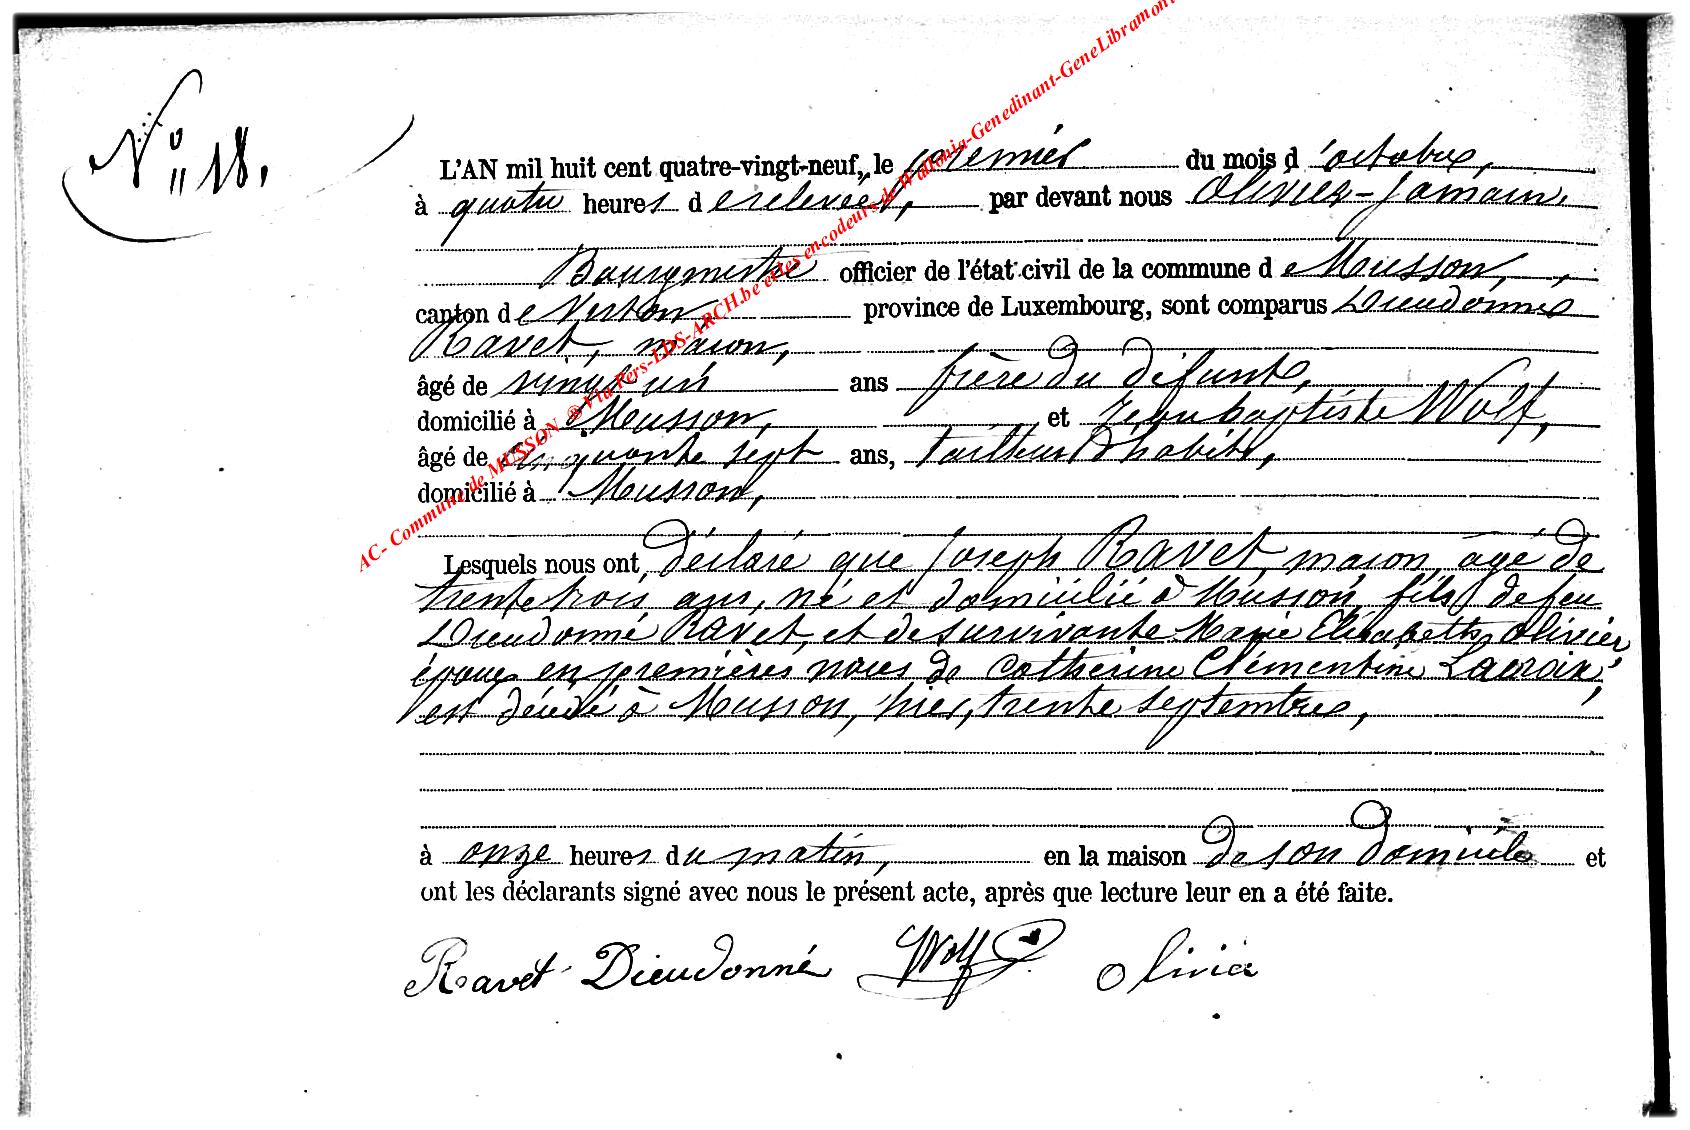 N° 18.
L'AN mil huit cent quatre-vingt-neuf, le premier du mois d'octobre,
à quatre heures de relevée, par devant nous Olivier-Jamain,
Bourgmestre officier de l'état civil de la commune de Musson,
canton de Virton province de Luxembourg, sont comparus Dieudonné
Ravet, maçon,
âgé de vingt un ans frère du défunt,
domicilié à Musson, et Jean baptiste Wolf,
âgé de cinquante sept ans, tailleur d'habits,
domicilié à Musson,
Lesquels nous ont déclaré que Joseph Ravet, maçon, âgé de
trente trois ans, né et domicilié à Musson, fils de feu
Dieudonné Ravet, et de survivante Marie Elisabeth Olivier,
époux en premières noces de Catherine Clémentine Lacroix,
est décédé à Musson, hier, trente septembre,
à onze heures du matin, en la maison de son domicile et
ont les déclarants signé avec nous le présent acte, après que lecture leur en a été faite.
Ravet Dieudonné Wolf Olivier
AC- Commune de MUSSON ® Via Pers-LDS-ARCH.be et les encodeurs de Wallonia-Genedinant-GeneLibramont